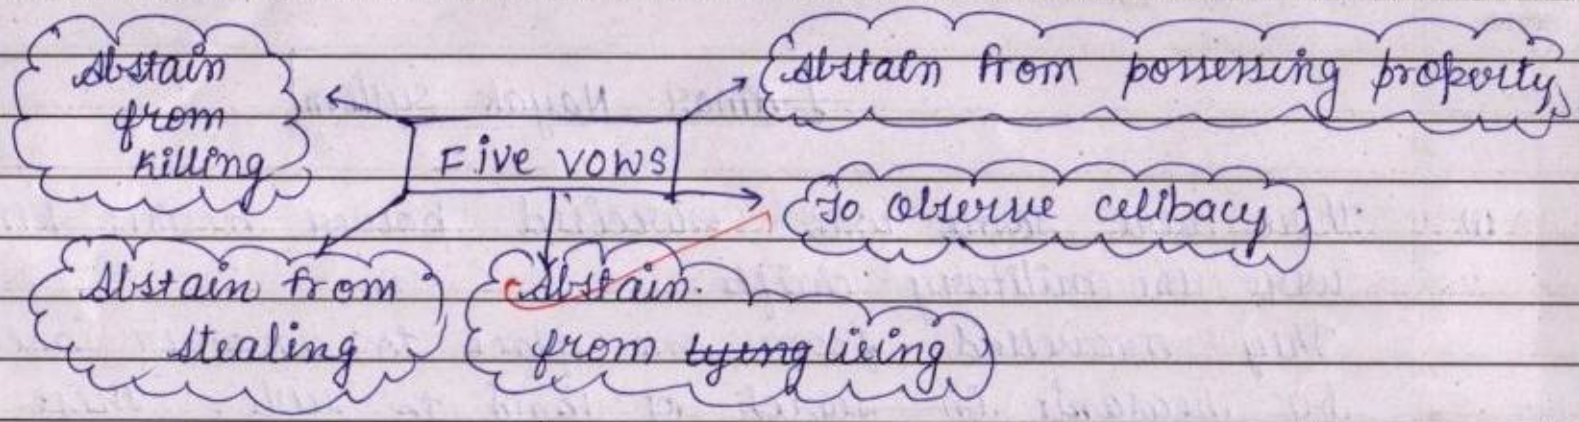 Abstain
from
killing
Abstain from possessing property
Five vows
To observe celibacy
Abstain from
stealing
Abstain.
from lying lieing